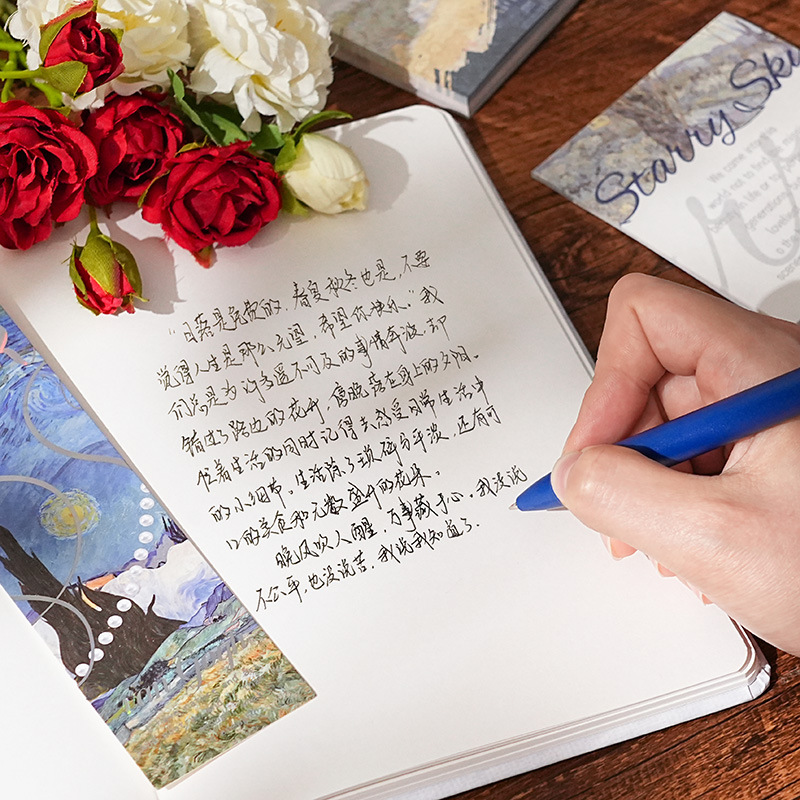 “日落是免费的，春夏秋冬也是，不要
觉得人生是那么无望，希望你快乐。”我
们总是为许多遥不可及的事情奔波，却
错过了路边的花开，傍晚落在身上的夕阳。
忙着生活的同时记得去感受日常生活中
的小细节。生活除了琐碎与平淡，还有可
口的美食和无数盛开的花朵。
晚风吹人醒，万事藏于心。我没说
不公平，也没说苦，我说我知道了.
Starry Sk